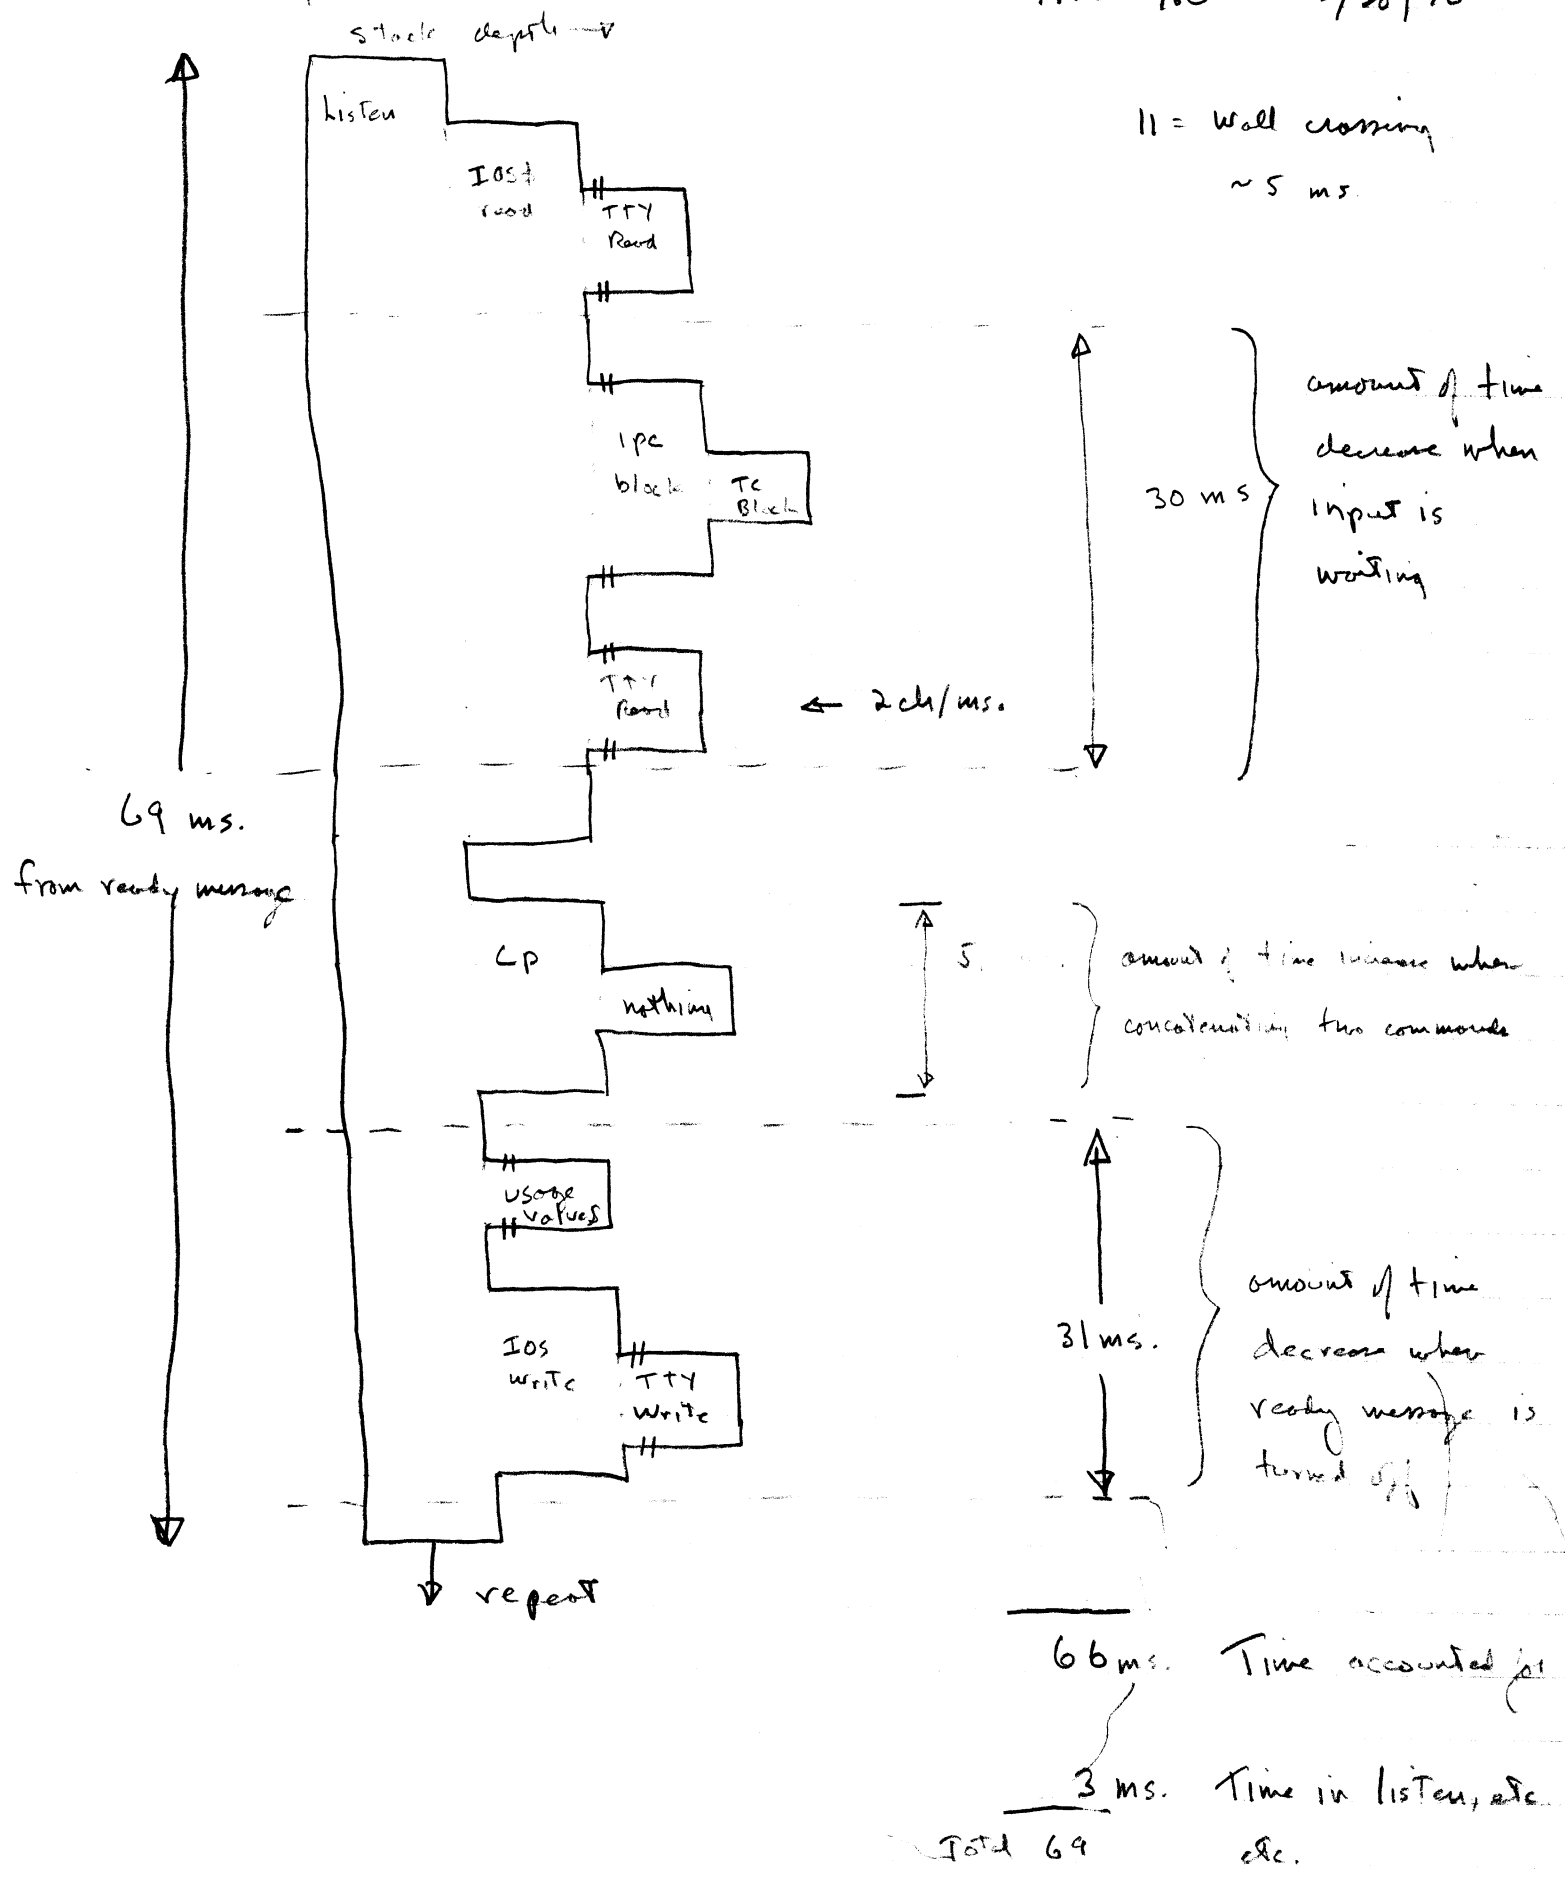 stack depth →
Listen
11 = Wall crossing
~ 5 ms.
IOS
read
TTY
Read
amount of time
decrease when
input is
waiting
30 ms
ipc
block
TC
Block
TTY
Read
← 2ch/ms.
69 ms.
from ready message
Cp
nothing
5
amount of time increase when
concatenating two commands
usage
values
IOS
write
TTY
Write
31 ms.
amount of time
decrease when
ready message is
turned off
repeat
66 ms. Time accounted for
3 ms. Time in listen, etc
Total 69 etc.